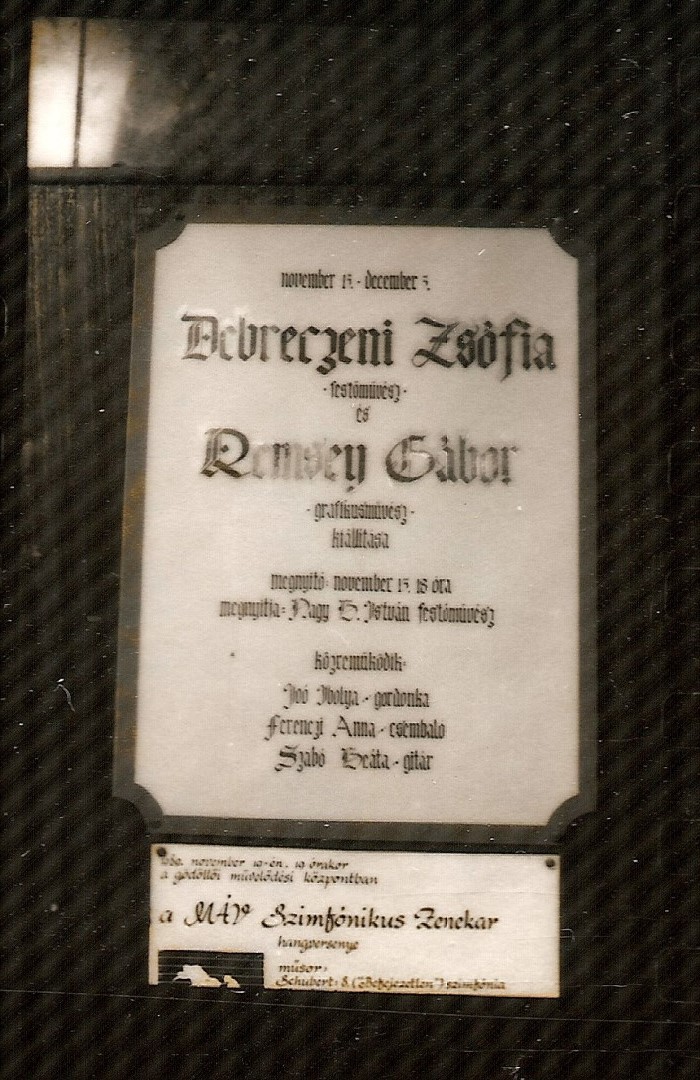 november 15. - december 5.
Debreczeni Zsófia
- festőművész -
és
Remsey Gábor
- grafikusművész -
kiállítása
megnyitó: november 15. 18 óra
megnyitja: Nagy B. István festőművész
közreműködik:
Joó Ibolya - gordonka
Ferenczi Anna - csembaló
Szabó Beáta - gitár
november 19-én, 19 órakor
a gödöllői művelődési központban
a MÁV Szimfónikus Zenekar
hangversenye
műsor:
Schubert: 8. ("Befejezetlen") szimfónia